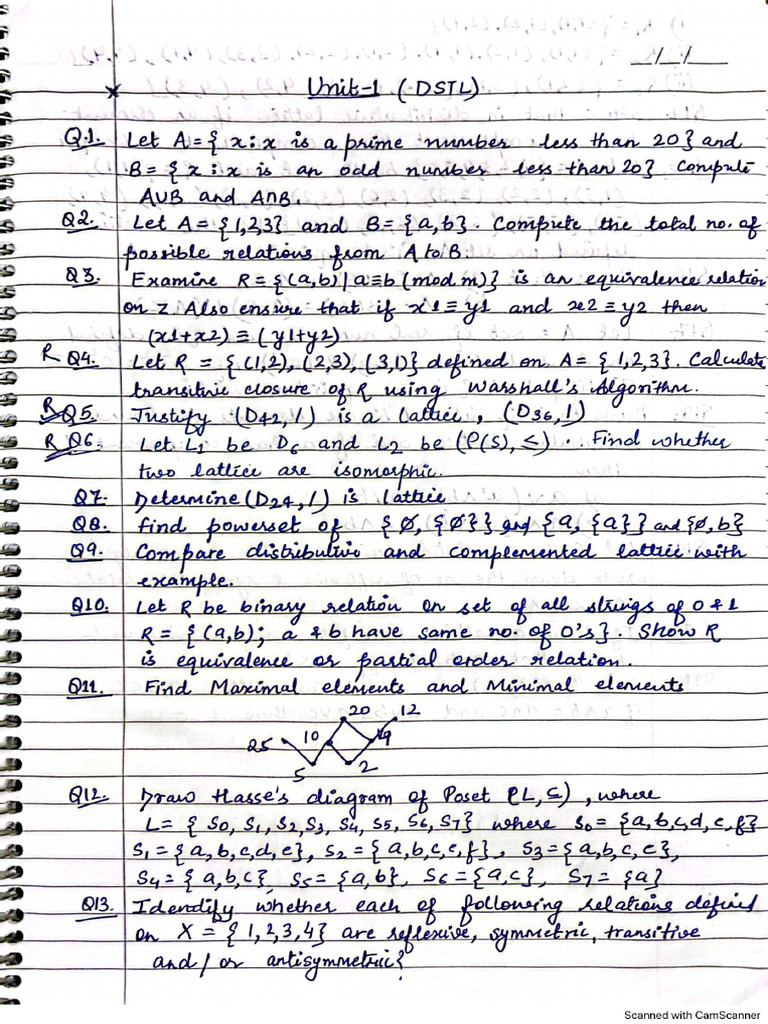 _/_/
Unit-1 (DSTL)
Q.1. Let A = { x : x is a prime number less than 20} and
B = { x : x is an odd number less than 20} Compute
A∪B and A∩B.
Q2. Let A = {1,2,3} and B = {a,b}. Compute the total no. of
possible relations from A to B.
Q3. Examine R = {(a,b) | a≡b (mod m)} is an equivalence relation
on Z Also ensure that if x1 ≡ y1 and x2 ≡ y2 then
(x1+x2) ≡ (y1+y2)
R Q4. Let R = { (1,2), (2,3), (3,1)} defined on A = { 1,2,3}. Calculate
transitive closure of R using Warshall's Algorithm.
R Q5 Justify (D42, /) is a lattice, (D36, /)
R Q6 Let L1 be D6 and L2 be (P(S), ≤) . Find whether
two lattice are isomorphic.
Q7. Determine (D24, /) is lattice
Q8. find powerset of { ∅, {∅}} and {a, {a}} and {∅, b}
Q9. Compare distributive and complemented lattice with
example.
Q10. Let R be binary relation on set of all strings of 0 & 1
R = { (a,b); a & b have same no. of 0's}. Show R
is equivalence or partial order relation.
Q11. Find Maximal elements and Minimal elements
20 12
25 10 4
5 2
Q12. Draw Hasse's diagram of Poset (L, ⊆) , where
L = { S0, S1, S2, S3, S4, S5, S6, S7} where S0 = {a,b,c,d,e,f}
S1 = {a,b,c,d,e}, S2 = {a,b,c,e,f}, S3 = {a,b,c,e},
S4 = {a,b,c}, S5 = {a,b}, S6 = {a,c}, S7 = {a}
Q13. Idendify whether each of following relations defined
on X = { 1,2,3,4} are reflexive, symmetric, transitive
and/or antisymmetric?
Scanned with CamScanner